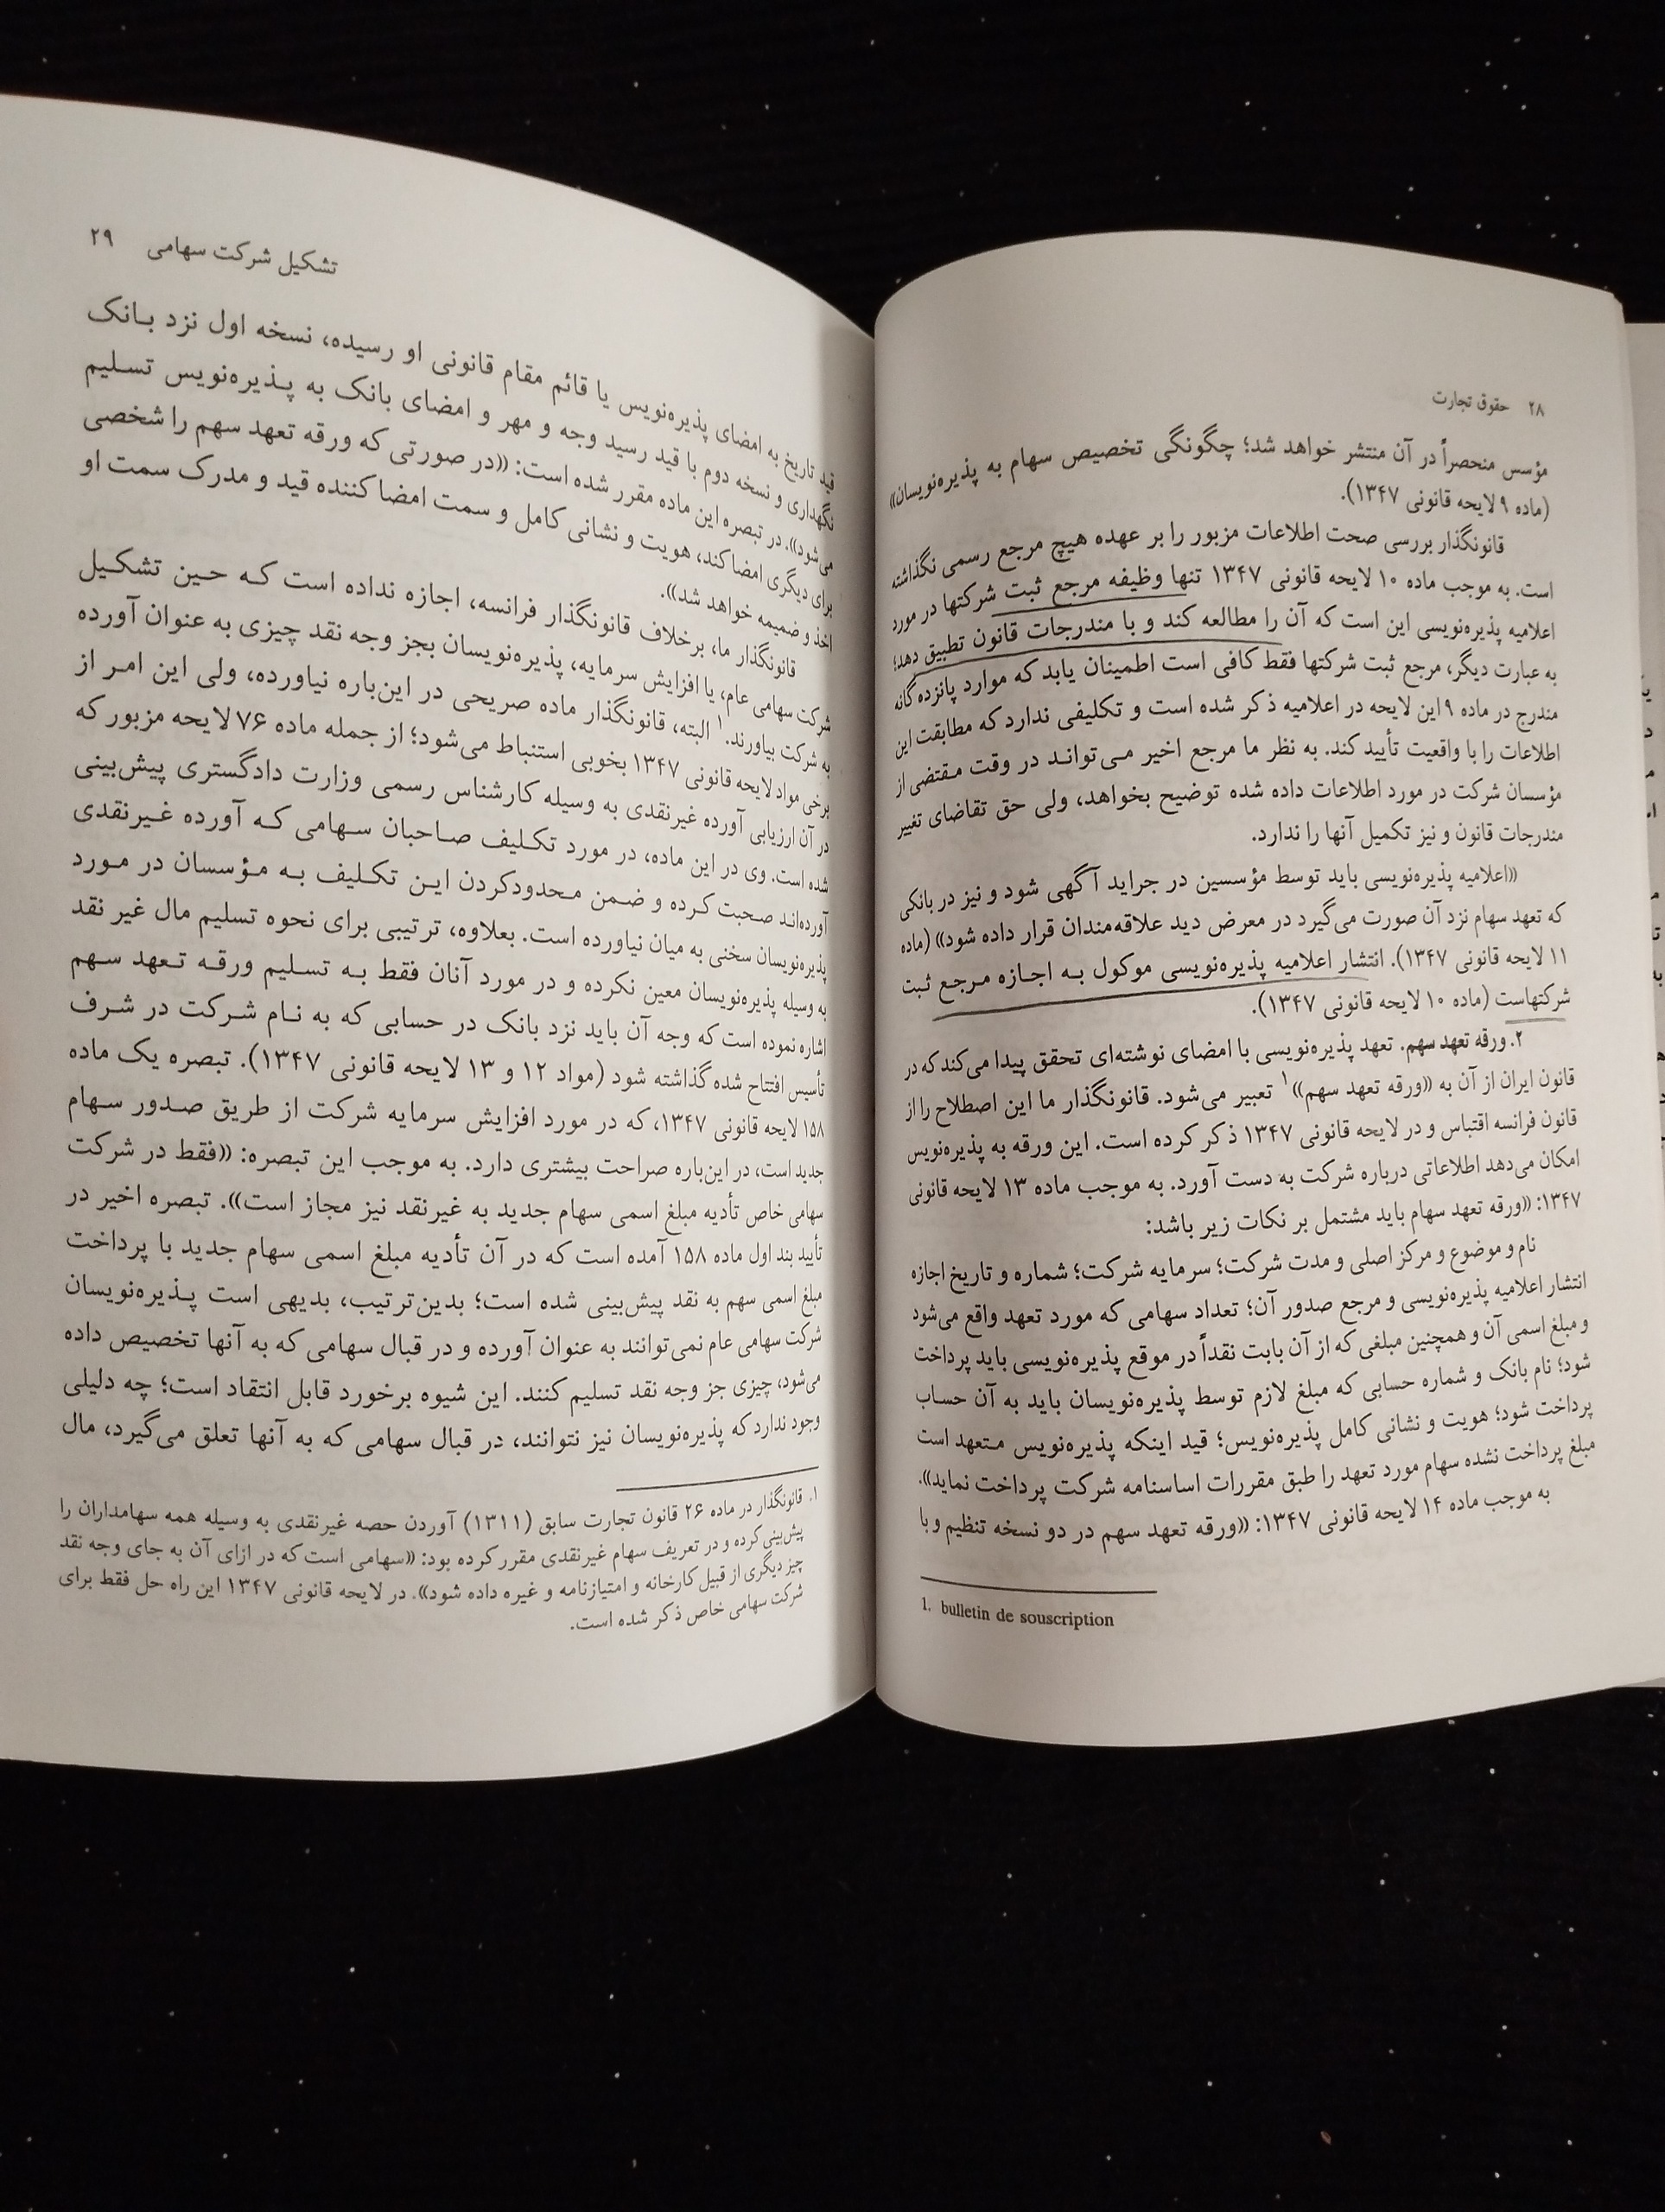 ۲۸ حقوق تجارت
مؤسس منحصراً در آن منتشر خواهد شد؛ چگونگی تخصیص سهام به پذیره‌نویسان»
(ماده ۹ لایحه قانونی ۱۳۴۷).
قانونگذار بررسی صحت اطلاعات مزبور را بر عهده هیچ مرجع رسمی نگذاشته
است. به موجب ماده ۱۰ لایحه قانونی ۱۳۴۷ تنها وظیفه مرجع ثبت شرکتها در مورد
اعلامیه پذیره‌نویسی این است که آن را مطالعه کند و با مندرجات قانون تطبیق دهد؛
به عبارت دیگر، مرجع ثبت شرکتها فقط کافی است اطمینان یابد که موارد پانزده‌گانه
مندرج در ماده ۹ این لایحه در اعلامیه ذکر شده است و تکلیفی ندارد که مطابقت این
اطلاعات را با واقعیت تأیید کند. به نظر ما مرجع اخیر می‌تواند در وقت مقتضی از
مؤسسان شرکت در مورد اطلاعات داده شده توضیح بخواهد، ولی حق تقاضای تغییر
مندرجات قانون و نیز تکمیل آنها را ندارد.
«اعلامیه پذیره‌نویسی باید توسط مؤسسین در جراید آگهی شود و نیز در بانکی
که تعهد سهام نزد آن صورت می‌گیرد در معرض دید علاقه‌مندان قرار داده شود» (ماده
۱۱ لایحه قانونی ۱۳۴۷). انتشار اعلامیه پذیره‌نویسی موکول به اجازه مرجع ثبت
شرکتهاست (ماده ۱۰ لایحه قانونی ۱۳۴۷).
۲. ورقه تعهد سهم. تعهد پذیره‌نویسی با امضای نوشته‌ای تحقق پیدا می‌کند که در
قانون ایران از آن به «ورقه تعهد سهم»۱ تعبیر می‌شود. قانونگذار ما این اصطلاح را از
قانون فرانسه اقتباس و در لایحه قانونی ۱۳۴۷ ذکر کرده است. این ورقه به پذیره‌نویس
امکان می‌دهد اطلاعاتی درباره شرکت به دست آورد. به موجب ماده ۱۳ لایحه قانونی
۱۳۴۷: «ورقه تعهد سهام باید مشتمل بر نکات زیر باشد:
نام و موضوع و مرکز اصلی و مدت شرکت؛ سرمایه شرکت؛ شماره و تاریخ اجازه
انتشار اعلامیه پذیره‌نویسی و مرجع صدور آن؛ تعداد سهامی که مورد تعهد واقع می‌شود
و مبلغ اسمی آن و همچنین مبلغی که از آن بابت نقداً در موقع پذیره‌نویسی باید پرداخت
شود؛ نام بانک و شماره حسابی که مبلغ لازم توسط پذیره‌نویسان باید به آن حساب
پرداخت شود؛ هویت و نشانی کامل پذیره‌نویس؛ قید اینکه پذیره‌نویس متعهد است
مبلغ پرداخت نشده سهام مورد تعهد را طبق مقررات اساسنامه شرکت پرداخت نماید».
به موجب ماده ۱۴ لایحه قانونی ۱۳۴۷: «ورقه تعهد سهم در دو نسخه تنظیم و با
1. bulletin de souscription
تشکیل شرکت سهامی ۲۹
قید تاریخ به امضای پذیره‌نویس یا قائم مقام قانونی او رسیده، نسخه اول نزد بانک
نگهداری و نسخه دوم با قید رسید وجه و مهر و امضای بانک به پذیره‌نویس تسلیم
می‌شود». در تبصره این ماده مقرر شده است: «در صورتی که ورقه تعهد سهم را شخصی
برای دیگری امضا کند، هویت و نشانی کامل و سمت امضا کننده قید و مدرک سمت او
اخذ و ضمیمه خواهد شد».
قانونگذار ما، برخلاف قانونگذار فرانسه، اجازه نداده است که حین تشکیل
شرکت سهامی عام، یا افزایش سرمایه، پذیره‌نویسان بجز وجه نقد چیزی به عنوان آورده
به شرکت بیاورند.۱ البته، قانونگذار ماده صریحی در این‌باره نیاورده، ولی این امر از
برخی مواد لایحه قانونی ۱۳۴۷ بخوبی استنباط می‌شود؛ از جمله ماده ۷۶ لایحه مزبور که
در آن ارزیابی آورده غیرنقدی به وسیله کارشناس رسمی وزارت دادگستری پیش‌بینی
شده است. وی در این ماده، در مورد تکلیف صاحبان سهامی که آورده غیرنقدی
آورده‌اند صحبت کرده و ضمن محدودکردن این تکلیف به مؤسسان در مورد
پذیره‌نویسان سخنی به میان نیاورده است. بعلاوه، ترتیبی برای نحوه تسلیم مال غیر نقد
به وسیله پذیره‌نویسان معین نکرده و در مورد آنان فقط به تسلیم ورقه تعهد سهم
اشاره نموده است که وجه آن باید نزد بانک در حسابی که به نام شرکت در شرف
تأسیس افتتاح شده گذاشته شود (مواد ۱۲ و ۱۳ لایحه قانونی ۱۳۴۷). تبصره یک ماده
۱۵۸ لایحه قانونی ۱۳۴۷، که در مورد افزایش سرمایه شرکت از طریق صدور سهام
جدید است، در این‌باره صراحت بیشتری دارد. به موجب این تبصره: «فقط در شرکت
سهامی خاص تأدیه مبلغ اسمی سهام جدید به غیرنقد نیز مجاز است». تبصره اخیر در
تأیید بند اول ماده ۱۵۸ آمده است که در آن تأدیه مبلغ اسمی سهام جدید با پرداخت
مبلغ اسمی سهم به نقد پیش‌بینی شده است؛ بدین‌ترتیب، بدیهی است پذیره‌نویسان
شرکت سهامی عام نمی‌توانند به عنوان آورده و در قبال سهامی که به آنها تخصیص داده
می‌شود، چیزی جز وجه نقد تسلیم کنند. این شیوه برخورد قابل انتقاد است؛ چه دلیلی
وجود ندارد که پذیره‌نویسان نیز نتوانند، در قبال سهامی که به آنها تعلق می‌گیرد، مال
۱. قانونگذار در ماده ۲۶ قانون تجارت سابق (۱۳۱۱) آوردن حصه غیرنقدی به وسیله همه سهامداران را
پیش‌بینی کرده و در تعریف سهام غیرنقدی مقرر کرده بود: «سهامی است که در ازای آن به جای وجه نقد
چیز دیگری از قبیل کارخانه و امتیازنامه و غیره داده شود». در لایحه قانونی ۱۳۴۷ این راه حل فقط برای
شرکت سهامی خاص ذکر شده است.